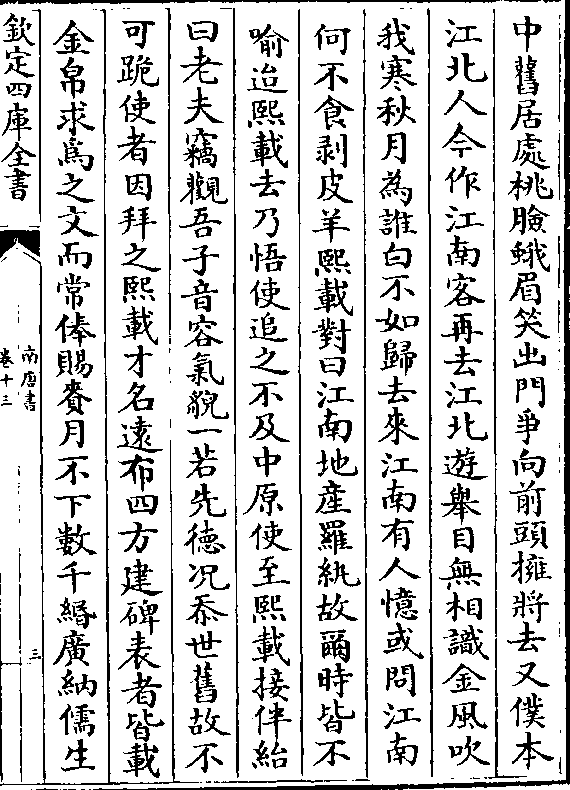 中舊居處桃臉蛾眉笑出門爭向前頭擁將去又僕本
江北人今作江南客再去江北遊舉目無相識金風吹
我寒秋月為誰白不如歸去來江南有人憶或問江南
何不食剥皮羊熙載對曰江南地産羅紈故爾時皆不
喻迨熙載去乃悟使追之不及中原使至熙載接伴紿
曰老夫竊觀吾子音容氣貌一若先徳况忝世舊故不
可跪使者因拜之熙載才名遠布四方建碑表者皆載
金帛求為之文而常俸賜賚月不下數千緡廣納儒生
欽定四庫全書
南唐書
卷十三
三